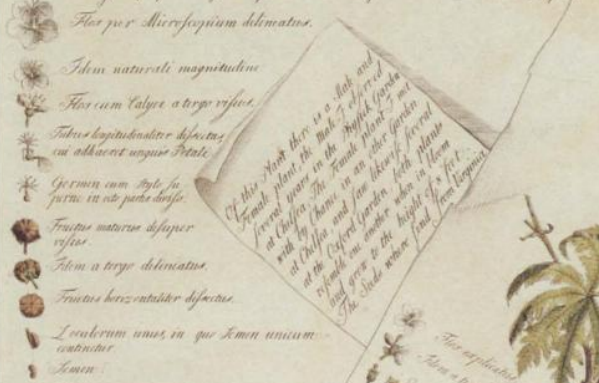 Flos per Microscopium delineatus.
Idem naturali magnitudine
Flos cum Calyce a tergo visus.
Tubus longitudinaliter dissectus,
cui adhaeret unguis Petali
Germen cum Stylo su
perne in octo partes diviso.
Fructus maturus desuper
visus.
Idem a tergo delineatus.
Fructus horizontaliter dissectus.
Loculorum unus, in quo Semen unicum
continetur
Semen
Of this Plant there is a Male and
Female plant, the Male I observed
several years in the Physick Garden
at Chelsea, The Female Plant I met
with by Chance in an other Garden
at Chelsea and saw likewise several
at the Oxford Garden both plants
resemble one another when in bloom
and grow to the height of feet
The Seeds where send from Virginia
Flos explicatus
Idem a